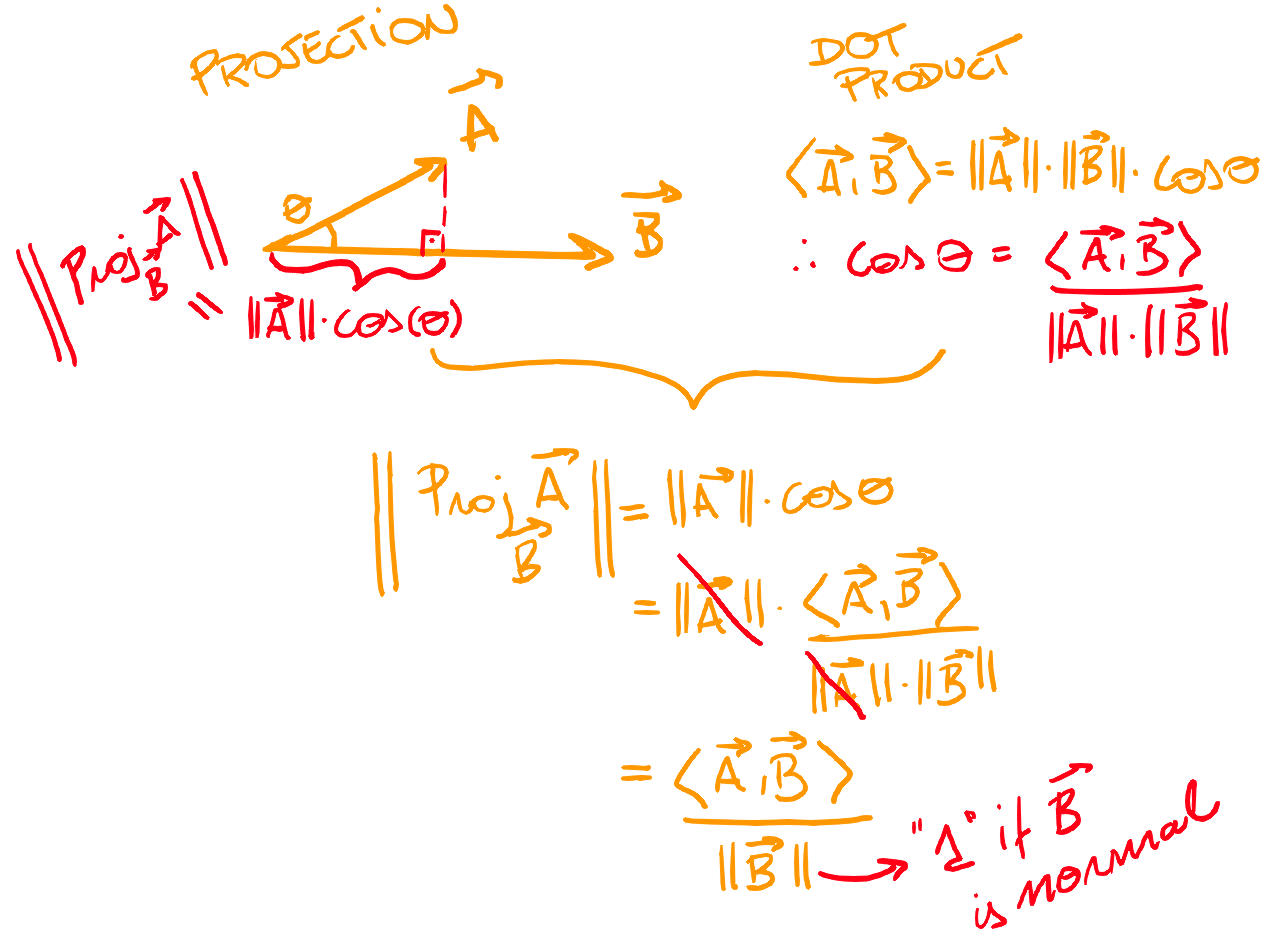 PROJECTION
A⃗
θ
B⃗
‖Proj_B A⃗‖
=
‖A⃗‖·cos(θ)
DOT
PRODUCT
⟨A⃗,B⃗⟩=‖A⃗‖·‖B⃗‖·cosθ
∴ cosθ = ⟨A⃗,B⃗⟩
‖A⃗‖·‖B⃗‖
‖Proj_B⃗ A⃗‖=‖A⃗‖·cosθ
=‖A⃗‖·⟨A⃗,B⃗⟩
‖A⃗‖·‖B⃗‖
=⟨A⃗,B⃗⟩
‖B⃗‖ → "1" if B⃗
is normal